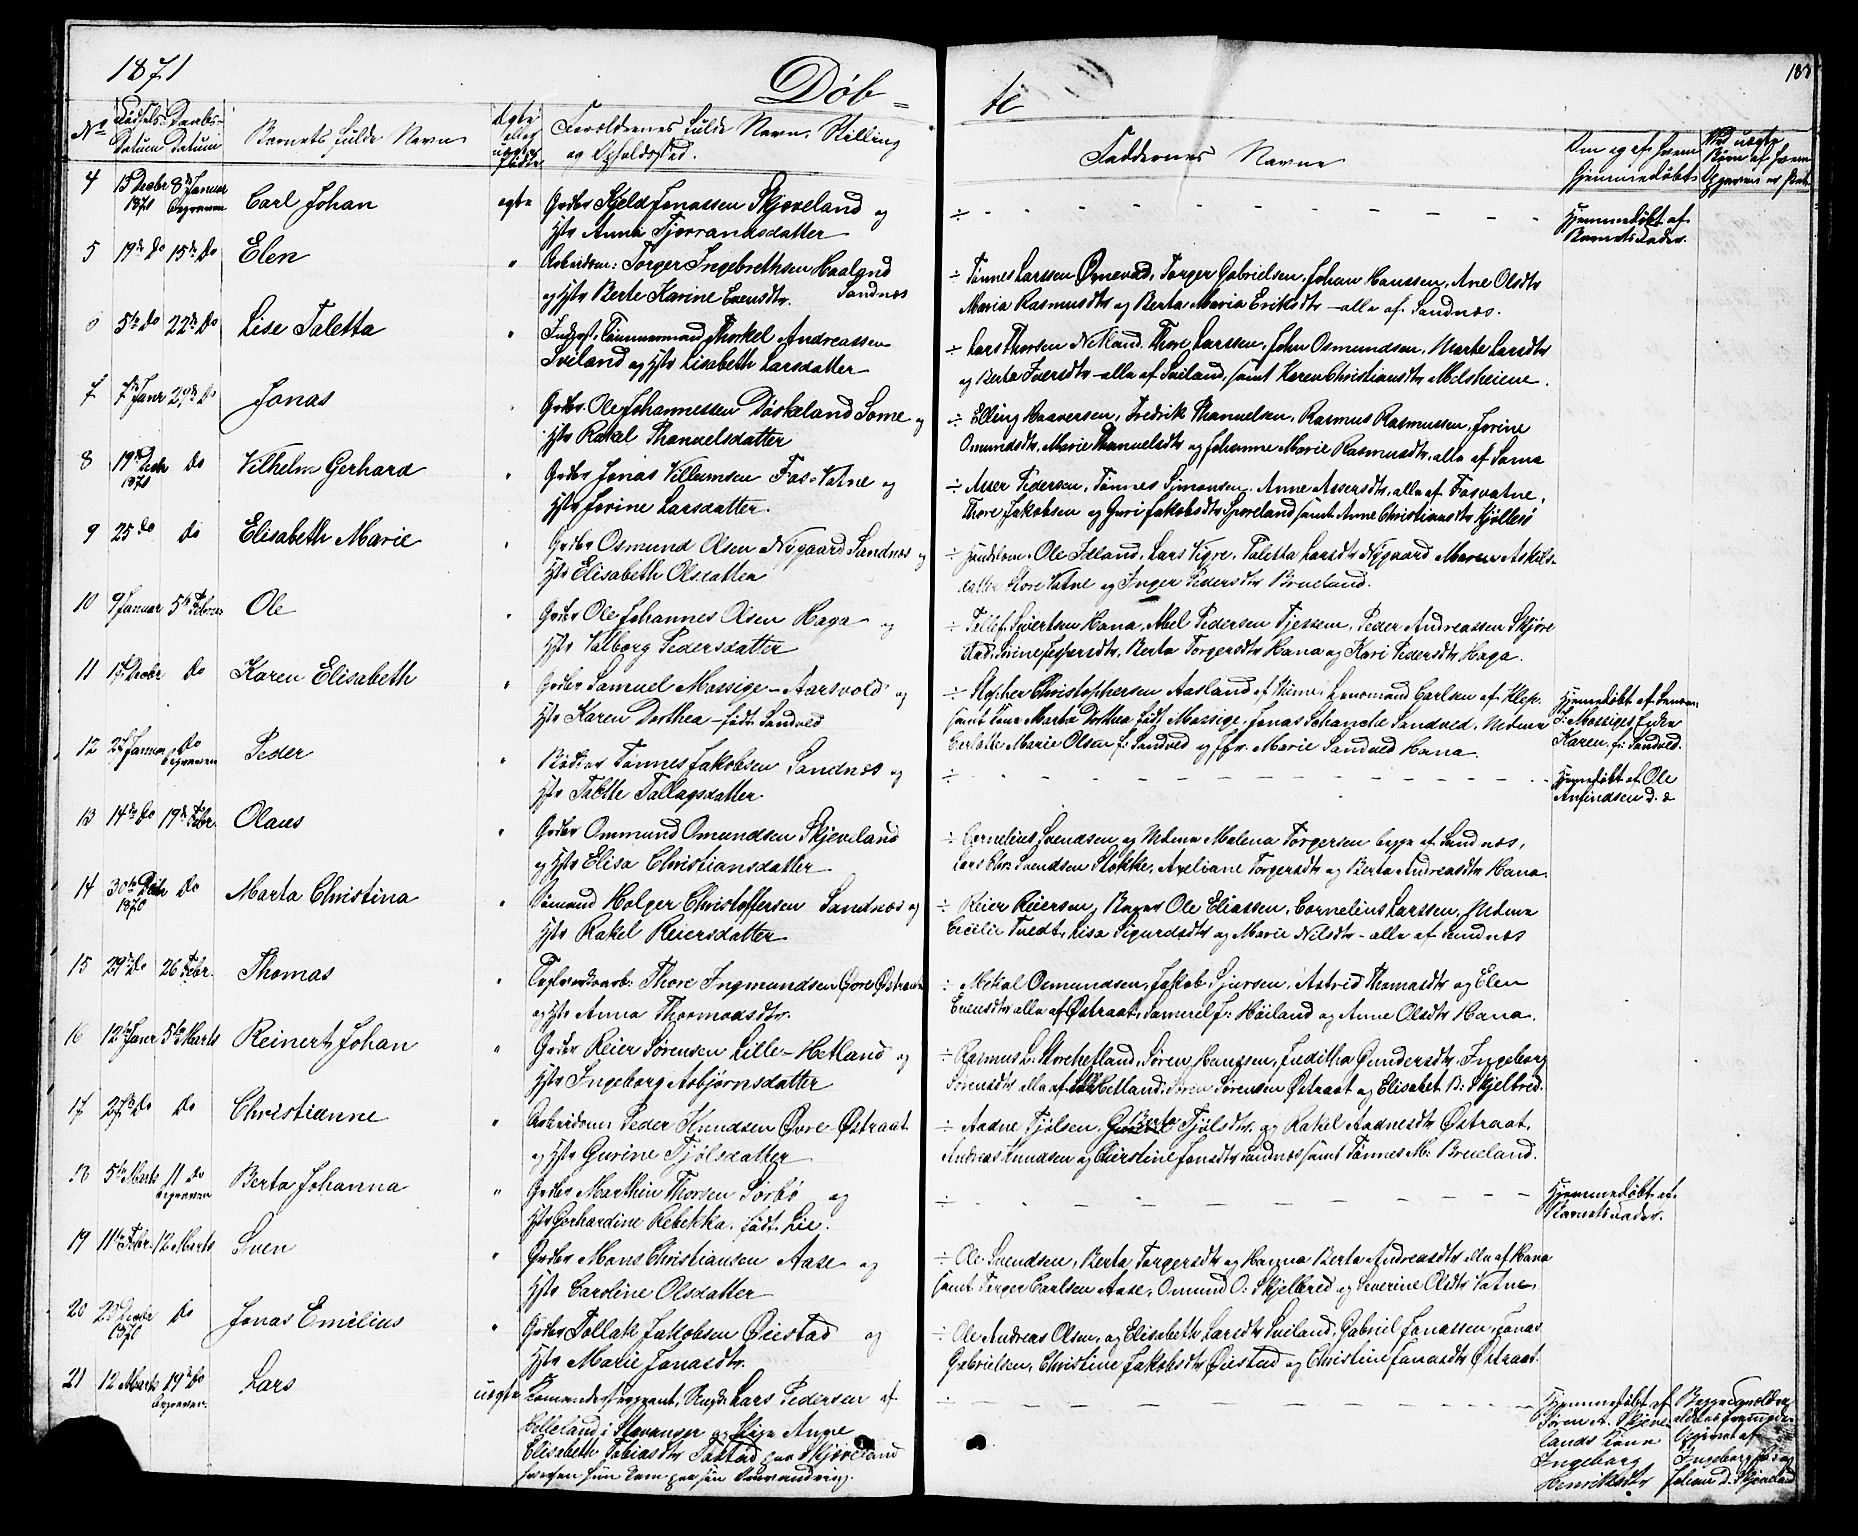 1871
Døb-
te
183
No
Fødsels-
Datum
Daabs-
Datum
Barnets fulde Navn
Ægte
eller
uægte
Fødte
Forældrenes fulde Navn, Stilling
og Opholdssted.
Faddernes Navne
Om og af hvem
hjemmedøbt
Ved uægte
Børn af hvem
Opgaven er
4 13 Decbr 1871 8de Januar Begraven Carl Johan ægte Grdbr Kjeld Jonassen Skjæveland og
Hstr Anna Tjerrandsdatter
÷ Hjemmedøbt af
Barnets Fader.
5 19de Do 15de Do Elen " Arbeidsm: Torger Ingebrethsen Haaland
og Hstr Berte Karine Evensdtr. Sandnæs
÷ Tønnes Larssen Ømevad, Torger Gabrielsen, Johan Hanssen, Ane Olsdtr
Maria Rasmusdtr og Berta Maria Eriksdtr - alle af Sandnæs.
6 5te Do 22de Do Lise Taletta " Indst. Tømmermand Thorkel Andreassen
Sviland og Hstr Lisabeth Larsdatter
÷ Lars Thorsen Netland, Thore Larssen, John Osmundsen, Marte Larsdtr
og Berta Iversdtr - alle af Sviland, samt Karen Christiansdtr Melsheiene.
7 7de Janr 29de Do Jonas Grdbr. Ole Johannessen Døskeland Some og
Hstr Rakel Thanuelsdatter
÷ Elling Haaversen, Fredrik Thanuelsen, Rasmus Rasmussen, Jorine
Omundsdtr, Marie Thanuelsdtr og Johanne Marie Rasmusdtr, alle af Soma
8 19de Decbr 1871 Do Vilhelm Gerhard " Grdbr Jonas Villumsen Fos-Vatne og
Hstr Jorine Larsdatter.
÷ Asser Pedersen, Tønnes Simonsen, Anne Assersdtr, alle af Fosvatne,
Thore Jakobsen og Guri Jakobsdtr Skjæreland samt Anne Christiansdtr Kjøllesø
9 25 Do Do Elisabeth Marie " Grdbr Osmund Olsen Nygaard Sandnæs og
Hstr Elisabeth Olsdatter
÷ Ole Iseland, Lars Vigre, Taletta Larsdtr Nygaard Maren Askils-
datter Store Vatne og Inger Pedersdtr Brueland.
10 9 Januar 5te Februar Ole " Grdbr Ole Johannes Olsen Haga og
Hstr Valborg Pedersdatter
÷ Tellef Sivertsen Hana, Abel Pedersen Tjessem, Peder Andreassen Skjøre
stad, Serine Jespersdtr, Berta Torgersdtr Hana og Kari Pedersdtr Haga.
11 17 Decbr Do Karen Elisabeth " Grdbr Samuel Massige-Aarsvold og
Hstr Karen Dorthea - født Sandved
÷ Stopher Christophersen Aasland af Time, Lensmand Carlsen af Klep,
samt Kone Marta Dorthea født Massige, Jonas Schanche Sandved, Mdme
Cerlotte Marie Olsen f: Sandved og Jfr. Marie Sandved Hana.
Hjemmedøbt af
S: Massiges
Karen, f: Sandved.
12 22 Januar Do Begraven Peder " Bødker Tønnes Jakobsen Sandnæs og
Hstr Talette Tallagsdatter
÷ Hjemmedøbt af Ole
Anfindsen d. æ
13 14de Do 19de Febr. Olaus " Grdbr Ommund Omundsen Skjæveland
og Hstr Elisa Christiansdatter
÷ Cornelius Svendsen og Mdme Malena Torgersen begge af Sandnæs,
Lars Chr. Svendsen Stokke, Axeliane Torgersdtr og Berta Andreasdtr Hana
14 30te Decbr 1870 Do Marta Christina " Sømand Holger Christoffersen Sandnæs og
Hstr Rakel Reiersdatter
÷ Reier Reiersen, Bager Ole Eliassen, Cornelius Larssen, Mdme
Cecilie Tvedt, Lisa Sigurdsdtr og Marie Nilsdtr - alle af Sandnæs
15 29de Do 26 Febr. Thomas " Teglværksarb: Thore Ingmundsen Øvre Østraat
og Hstr Anna Thormodsdtr.
÷ Mikal Osmundsen, Jakob Sjursen, Astrid Thomasdtr og Elen
Evensdtr alle af Østraat, Samuel J: Høiland og Anne Olsdtr Hana.
16 12te Janr 5te Marts Reinert Johan " Grdbr Reier Sørensen Lille-Hetland og
Hstr Ingeborg Asbjørnsdatter
÷ Rasmus L: Storehetland, Søren Hanssen, Juditha Gundersdtr, Ingeborg
Sørensdtr alle af Lille Hetland, Søren Sørensen Østraat og Elisabet B: Skjelbred.
17 27de Do Do Christianne " Arbeidsm: Peder Knudsen Øvre-Østraat
og Hstr Gurine Tjølsdatter
÷ Aadne Tjølsen, Berta Tjølsdtr, og Rakel Aadnesdtr Østraat,
Andreas Knudsen og Cirstine Jonsdtr Sandnæs samt Tønnes M: Brueland.
18 5te Marts 11 Do Begraven Berta Johanna " Grdbr Marthin Thorsen Sørbø og
Hstr Gerhardine Rebekka. født Lie.
÷ Hjemmedøbt af
Barnets Fader.
19 11te Febr. 12 Marts Sven " Grdbr Mons Christiansen Aase og
Hstr Caroline Olsdatter
÷ Ole Svendsen, Berta Torgersdtr og Hanna Berta Andreasdtr alle af Hana
samt Torger Carlsen Aase, Omund O: Skjelbred og Severine Olsdtr Vatne.
20 Decbr 1870 Do Jonas Emilius " Grdbr Tollak Jakobsen Øiestad og
Hstr Marie Jonasdtr.
÷ Ole Andreas Olsen, og Elisabeth Larsdtr Sviland, Gabriel Jonassen, Jonas
Gabrielsen, Christine Jakobsdtr Øiestad og Christine Jonasdtr Østraat.
21 12 Marts 19de Do Begraven. Lars uægte Lars Pedersen af
i Stavanger og Pige Anne
Elisabeth Tobiasdtr Tastad paa Skjæveland
hvorhen hun kom paa sin Omvandring.
÷ Hjemmedøbt af
Søren A. Skjæve-
lands Kone
Ingeborg
Henriksdtr
Begge
Opgivet af
Ingeborg
Johan D. Skjæveland